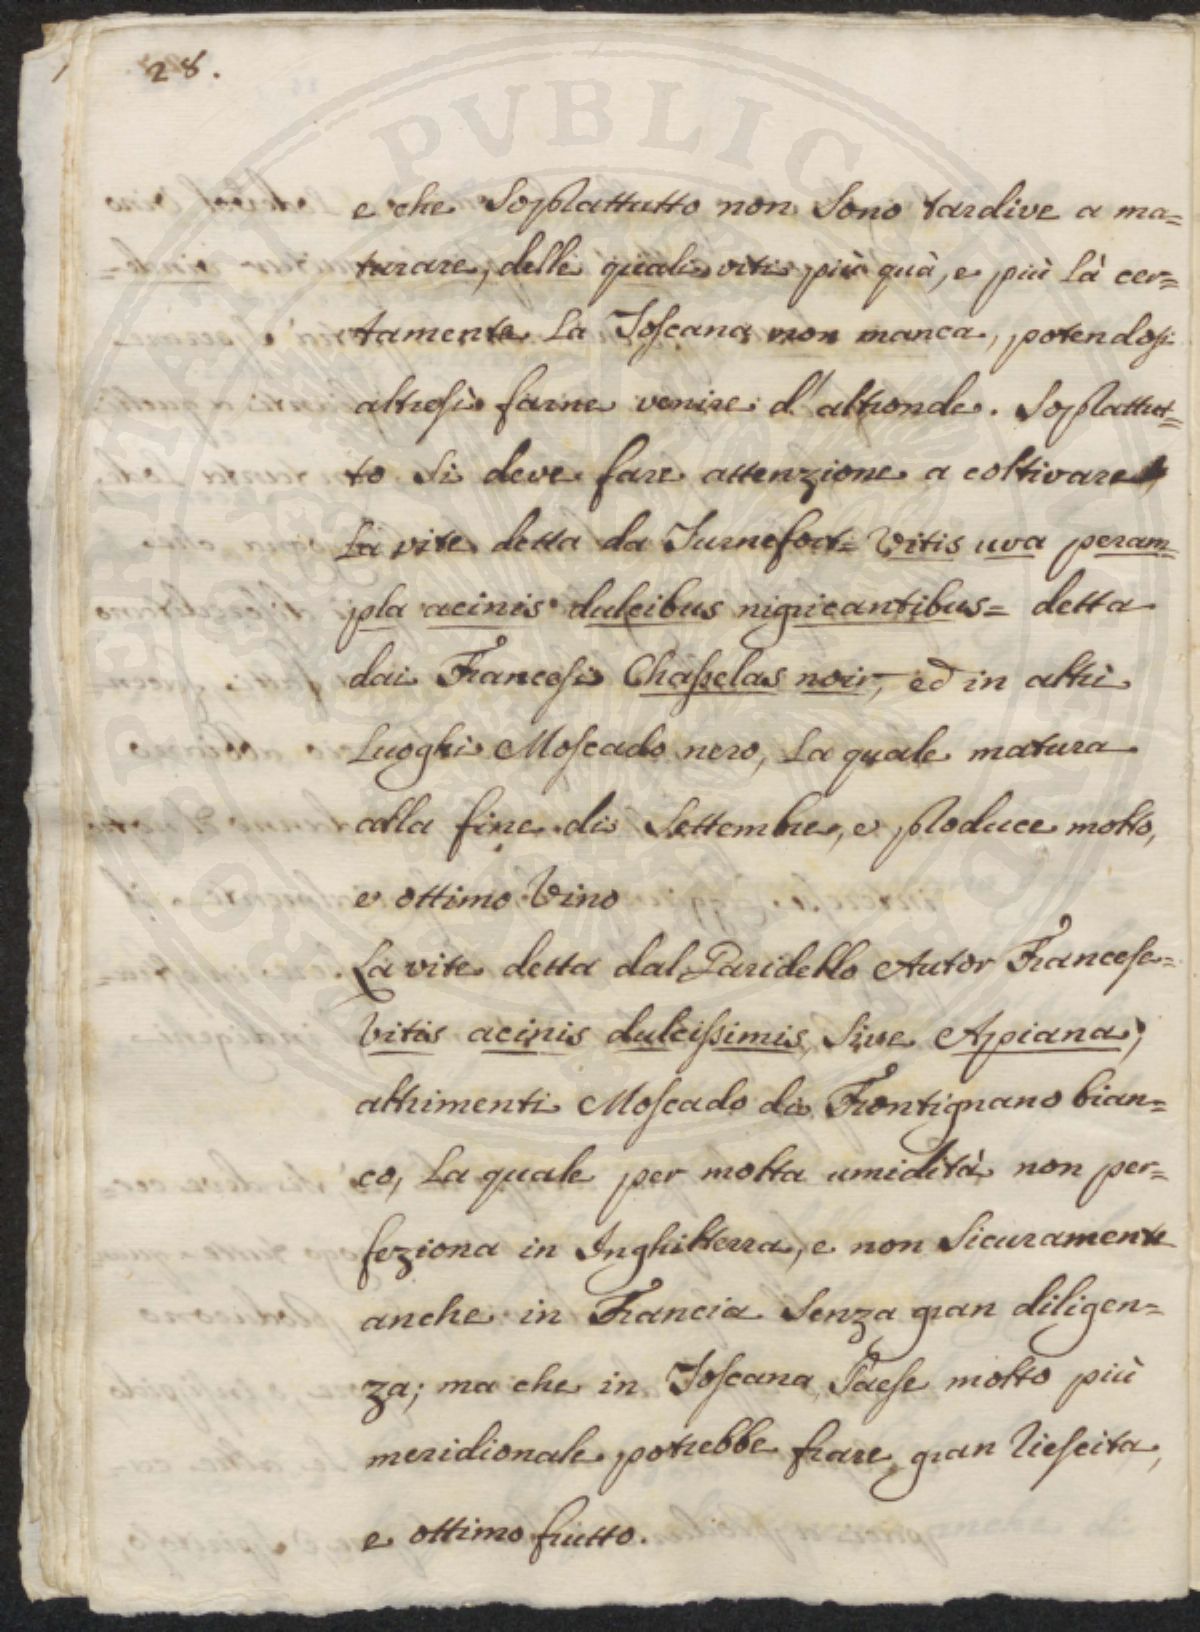 28.
e che Soprattutto non Sono tardive a ma=
turare, delle quali viti più quà, e più Là cer=
tamente La Toscana non manca, potendosi
altresì farne venire d'altronde. Soprattut=
to Si deve fare attenzione a coltivare
La vite detta da Turnefort= Vitis uva peram=
pla acinis dulcibus nigricantibus= detta
dai Francesi Chasselas noir, ed in altri
Luoghi Moscado nero, La quale matura
alla fine di Settembre, e produce molto,
e ottimo Vino
La vite detta dal Garidello Autor Francese=
Vitis acinis dulcissimis, Sive Apiana;
altrimenti Moscado di Frontignano bian=
co, La quale per molta umidità non per=
feziona in Inghilterra, e non Sicuramente
anche in Francia Senza gran diligen=
za; ma che in Toscana Paese molto più
meridionale potrebbe frare gran Riescita,
e ottimo frutto.